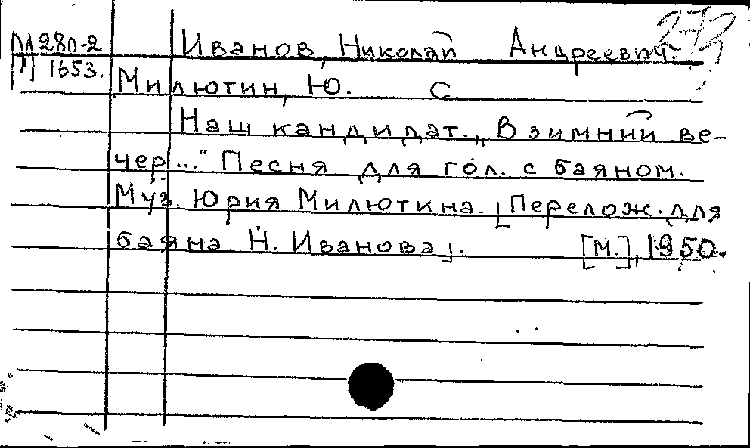 М 280-2 Иванов, Николай Андреевич.
1653. Милютин, Ю. С
Наш кандидат. „В зимний ве-
чер..." Песня для гол. с баяном.
Муз. Юрия Милютина. [Перелож. для
баяна Н. Иванова]. [М.], 1950.